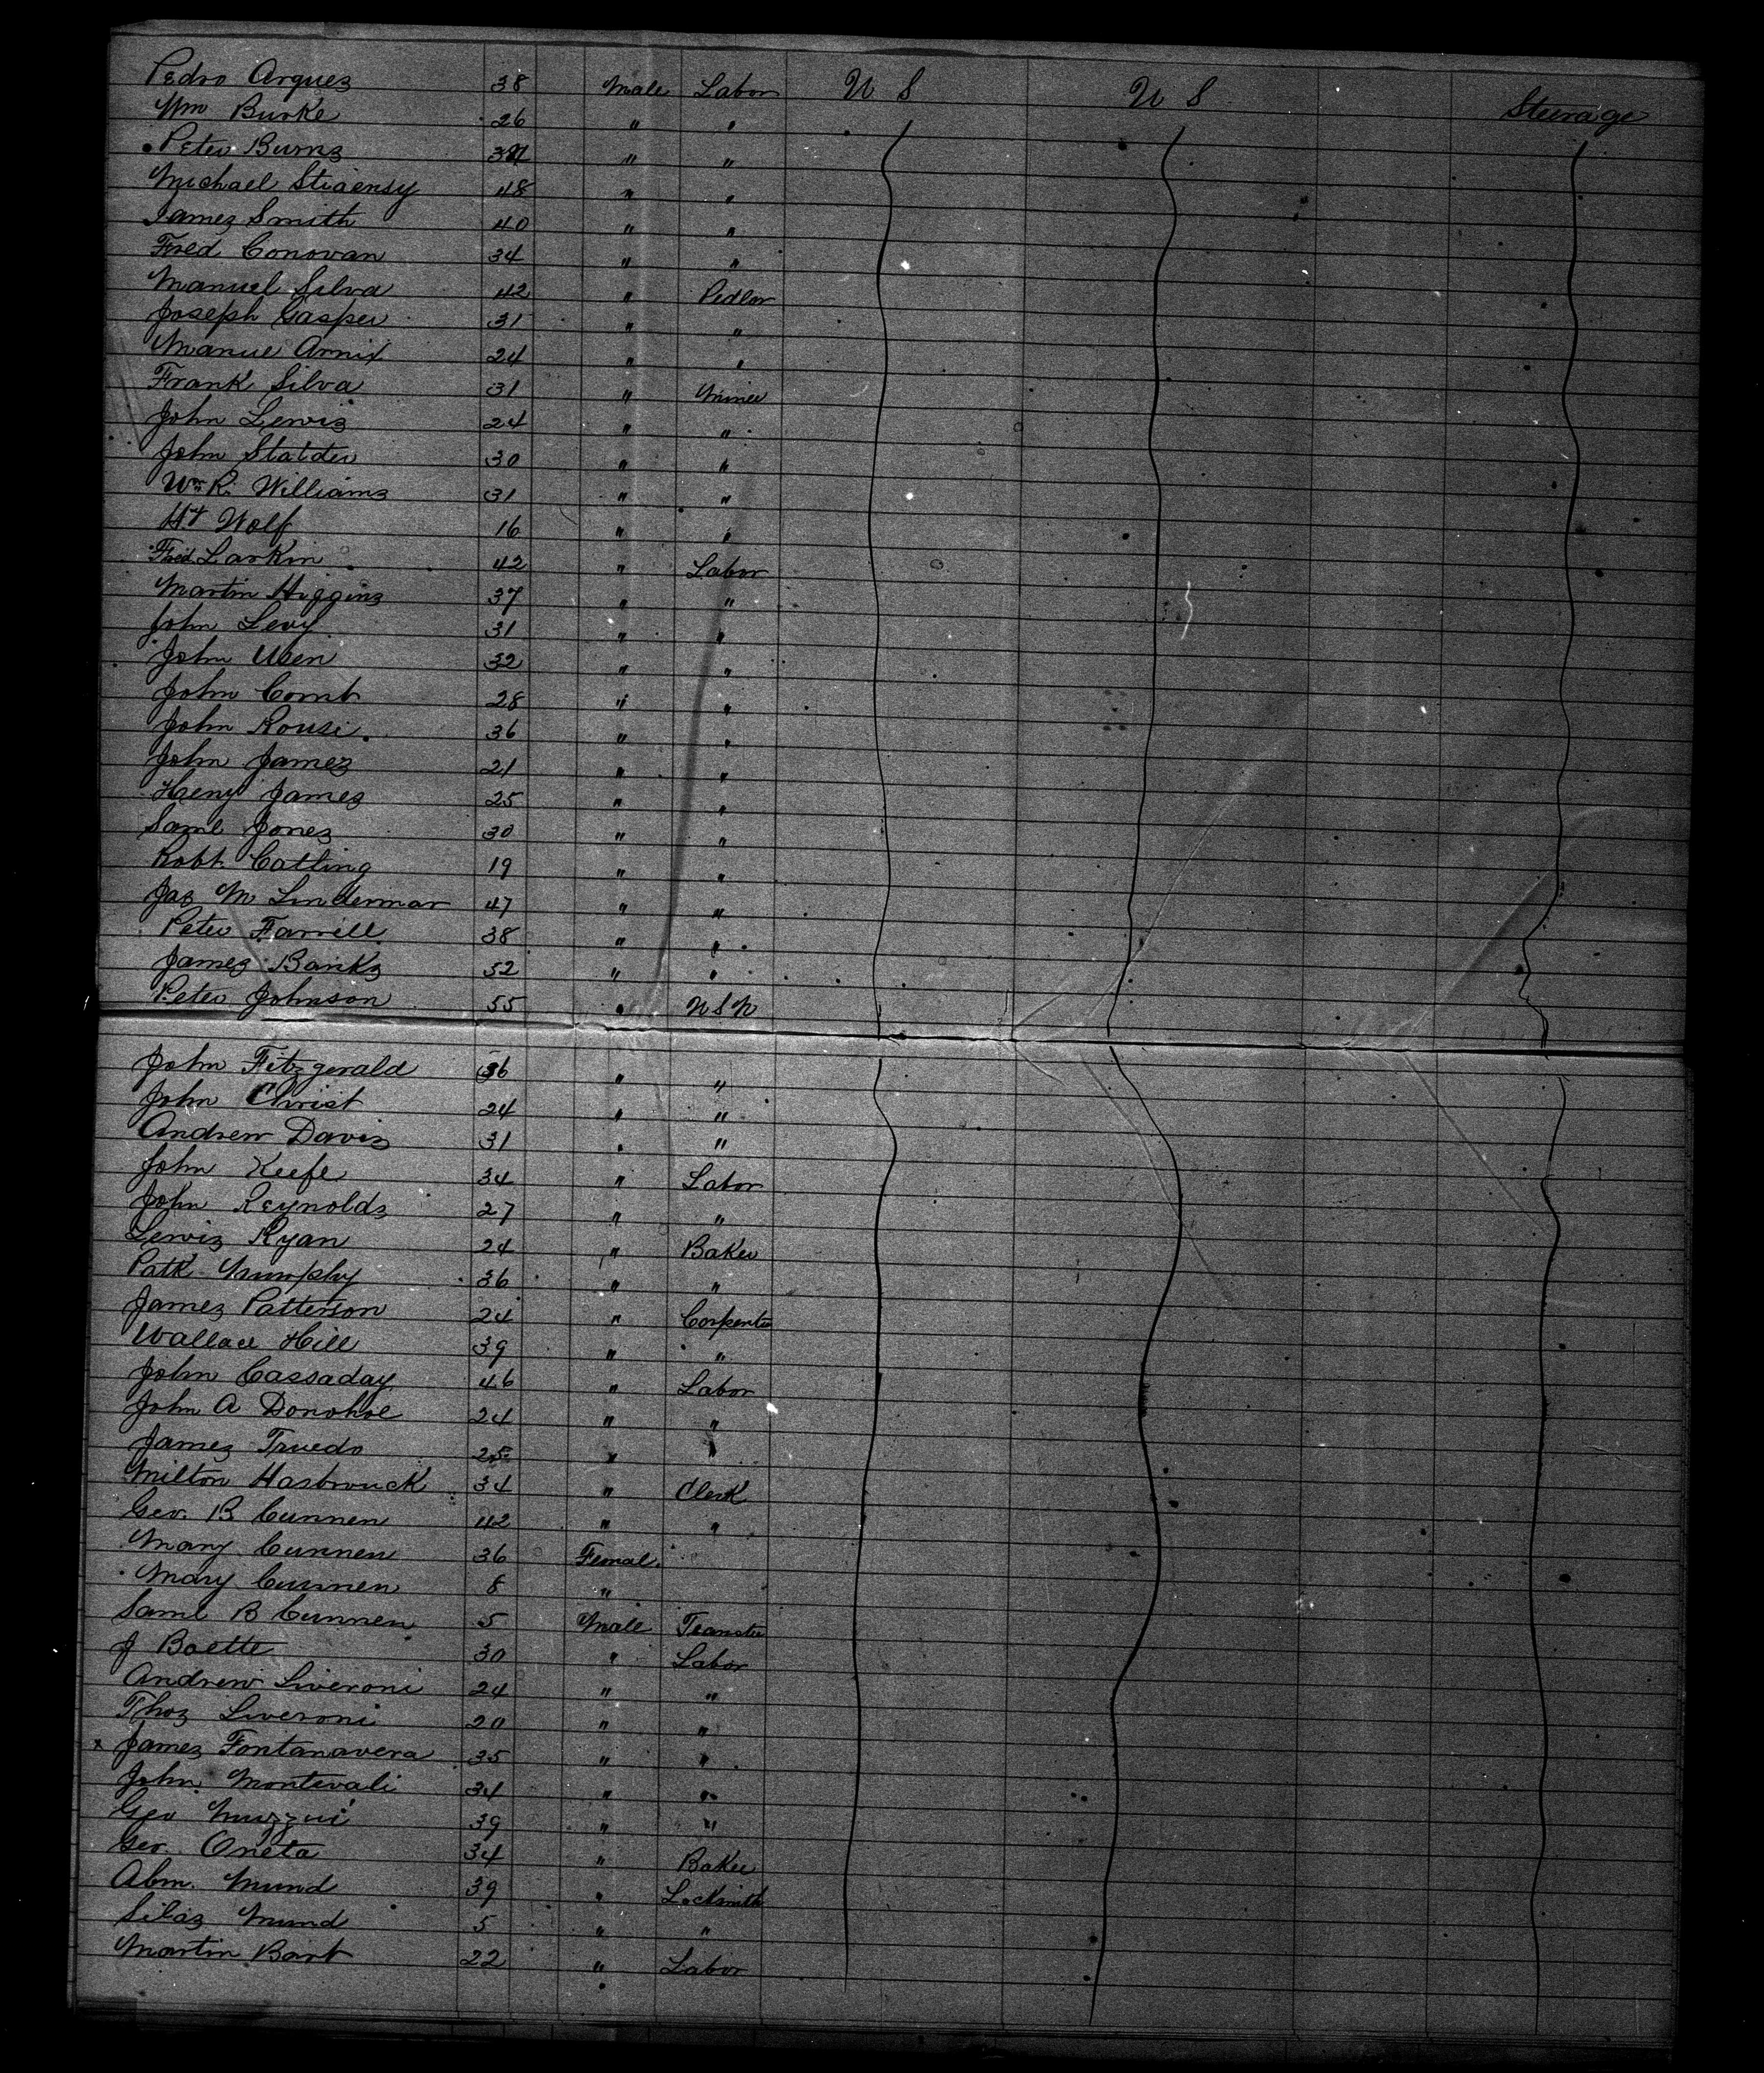 Pedro Arques 38 Male Labor U S U S Steerage
Wm Burke 26 " "
Peter Burns " "
Michael 48 " "
James Smith 40 " "
Fred Conovan 34 " "
Manuel Silva 42 " Pedler
Joseph Gasper 31 " "
Manuel 24 " "
Frank Silva 31 " Miner
John Lewis 24 " "
John Statder 30 " "
Wm R. Williams 31 " "
Wolf 16 " "
Fred Larkin 42 " Labor
Martin Higgins 37 " "
John Levy 31 " "
John Usen 32 " "
John Comb 28 " "
John Rousi 36 " "
John James 21 " "
Heny James 25 " "
Saml Jones 30 " "
Robt. Catling 19 " "
Jas M Linderman 47 " "
Peter Farrell 38 " "
James Banks 52 " "
Peter Johnson 55 " U S N
John Fitzgerald 36 " "
John Christ 24 " "
Andrew Davis 31 " "
John Keefe 34 " Labor
John Reynolds 27 " "
Lewis Ryan 24 " Baker
Patk Murphy 36 " "
James Patterson 24 " Carpenter
Wallace Hill 39 " "
John Cassaday 46 " Labor
John A Donohoe 24 " "
James Truedo 25 " "
Milton Hasbrouck 34 " Clerk
Geo. B Cunnen 42 " "
Mary Cunnen 36 Female
Mary Cunnen 8 "
Saml B Cunnen 5 Male Teamster
J Boette 30 " Labor
Andrew Liveroni 24 " "
Thos Liveroni 20 " "
x James Fontanavera 35 " "
John Montevali 34 " "
Geo Muzzui 39 " "
Geo. Oneta 34 " Baker
Abm. Mund 39 " Locksmith
Silas Mund 5 " "
Martin Bart 22 " Labor
"